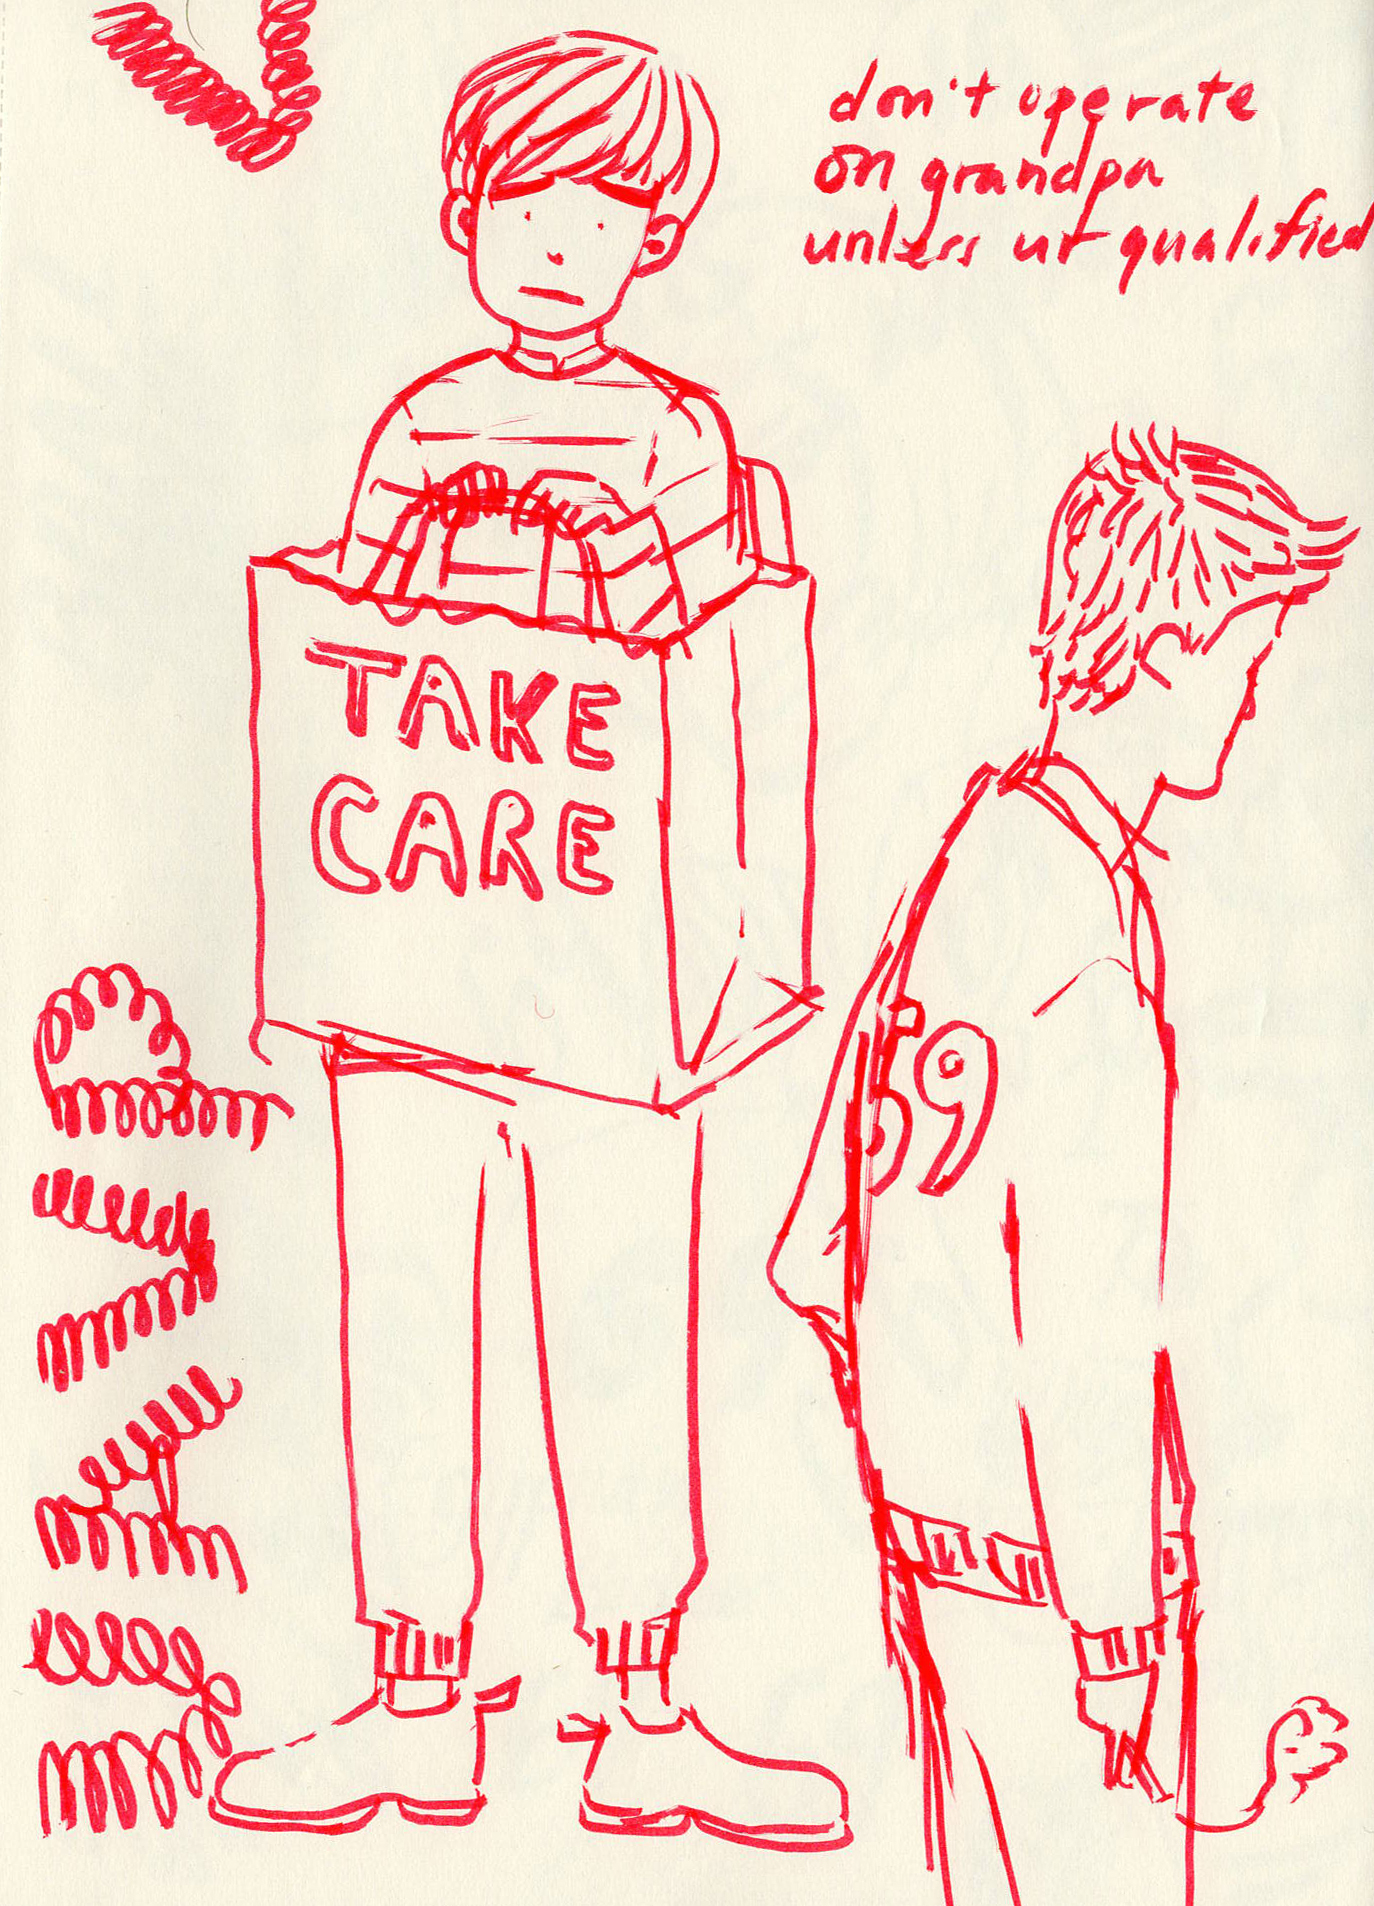 don't operate
on grandpa
unless ur qualified
TAKE
CARE
59